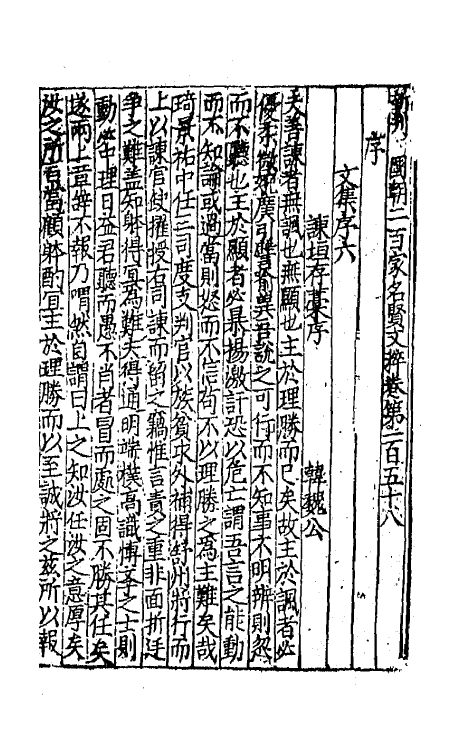 新刋國朝二百家名賢文粹卷第一百五十八
序
文集序六
諫垣存藁序 韓魏公
夫善諫者無諷也無顯也主於理勝而已矣故主於諷者必
優柔微婉廣引譬喻冀吾說之可行而不知事不明辨則忽
而不聽也主於顯者必暴揚激訐恐以危亡謂吾言之能動
而不知論或過當則怒而不信苟不以理勝之為主難矣哉
琦景祐中任三司度支判官以族貧求外補得舒州將行而
上以諫官使擢授右司諫而留之竊惟言責之重非面折廷
爭之難盖知躰得宜為難夫得通明端樸高識博學之士則
動必中理日益君聽而愚不肖者冒而處之固不勝其任矣
遂兩上章辞不報乃喟然自謂曰上之知汝任汝之意厚矣
汝之所言當顧躰酌宜主於理勝而以至誠將之兹所以報